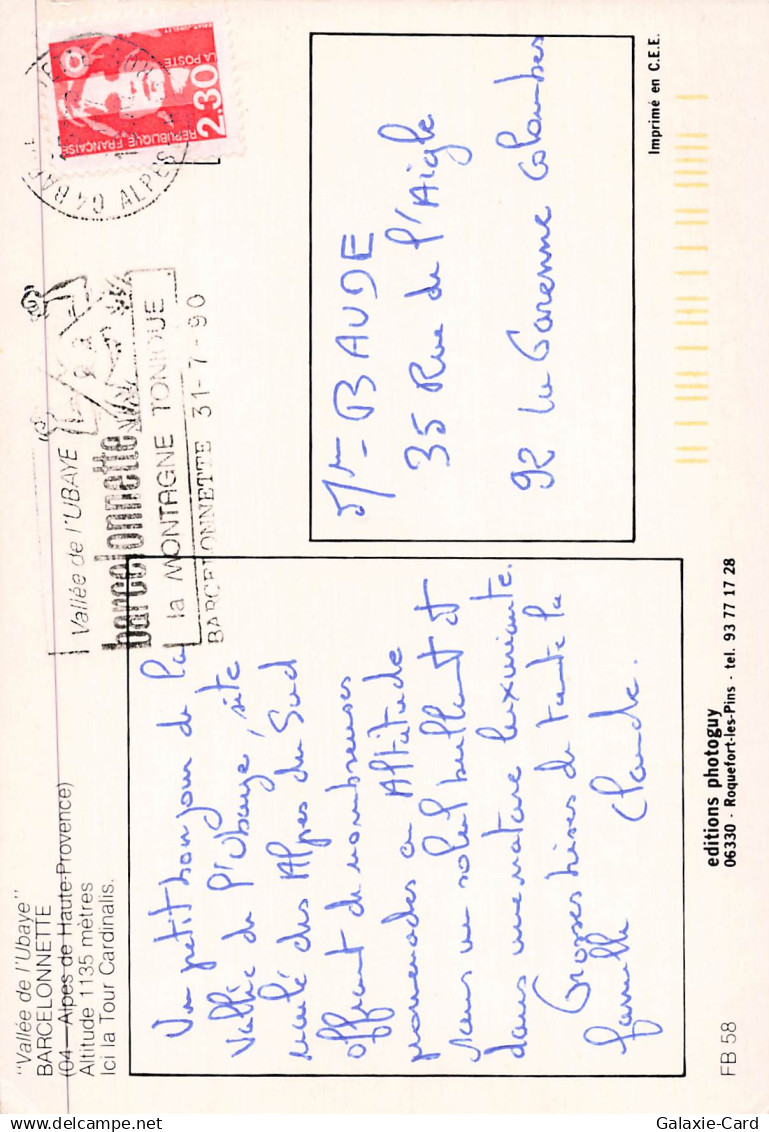 "Vallée de l'Ubaye"
BARCELONNETTE
(04 - Alpes de Haute-Provence)
Altitude 1135 mètres
Ici la Tour Cardinalis.
Un petit bonjour de la
Vallée de l'Ubaye, site
des Alpes du Sud
offrant de nombreuses
promenades en Altitude
sous un soleil brillant et
dans une nature luxuriante.
Grosses bises de toute la
famille
Claude.
Vallée de l'UBAYE
barcelonnette
la MONTAGNE TONIQUE
BARCELONNETTE 31-7-90
04 BAR
ALPES
LA POSTE
2,30
REPUBLIQUE FRANÇAISE
Mr BAUDE
35 Rue de l'Aigle
92 La Garenne Colombes
Imprimé en C.E.E.
editions photoguy
06330 - Roquefort-les-Pins - tel. 93 77 17 28
FB 58
Galaxie-Card